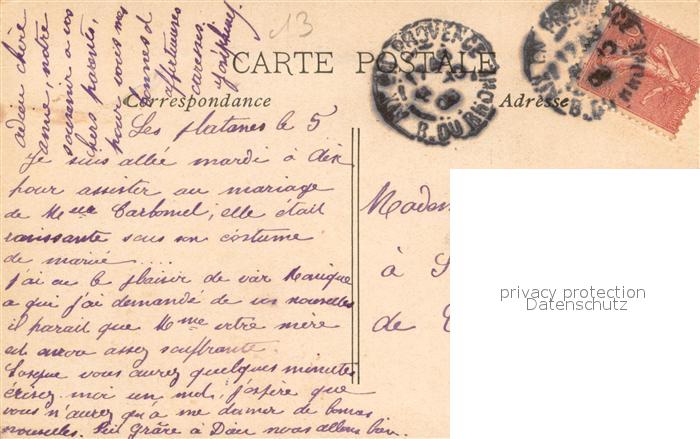 13
CARTE POSTALE
Correspondance
Adresse
AIX EN PROVENCE
B. DU RHONE
AIX EN PROVENCE
B. DU RHONE
Les platanes le 5
Je suis allée mardi à Aix
pour assister au mariage
de Melle Carbonel, elle était
ravissante sous son costume
de mariée ....
J'ai eu le plaisir de voir Monique
a qui j'ai demandé de vos nouvelles
il parait que Mme votre mère
est encore assez souffrante.
Lorsque vous aurez quelques minutes
écrivez moi un mot, j'espère que
vous n'aurez qu'à me donner de bonnes
nouvelles. Ici grâce à Dieu nous allons bien.
adieu chère
amie, notre
souvenir a vos
chers parents,
pour vous mes
bonnes et
affectueuses
caresses
Joséphine
Madem
à S
de
privacy protection
Datenschutz